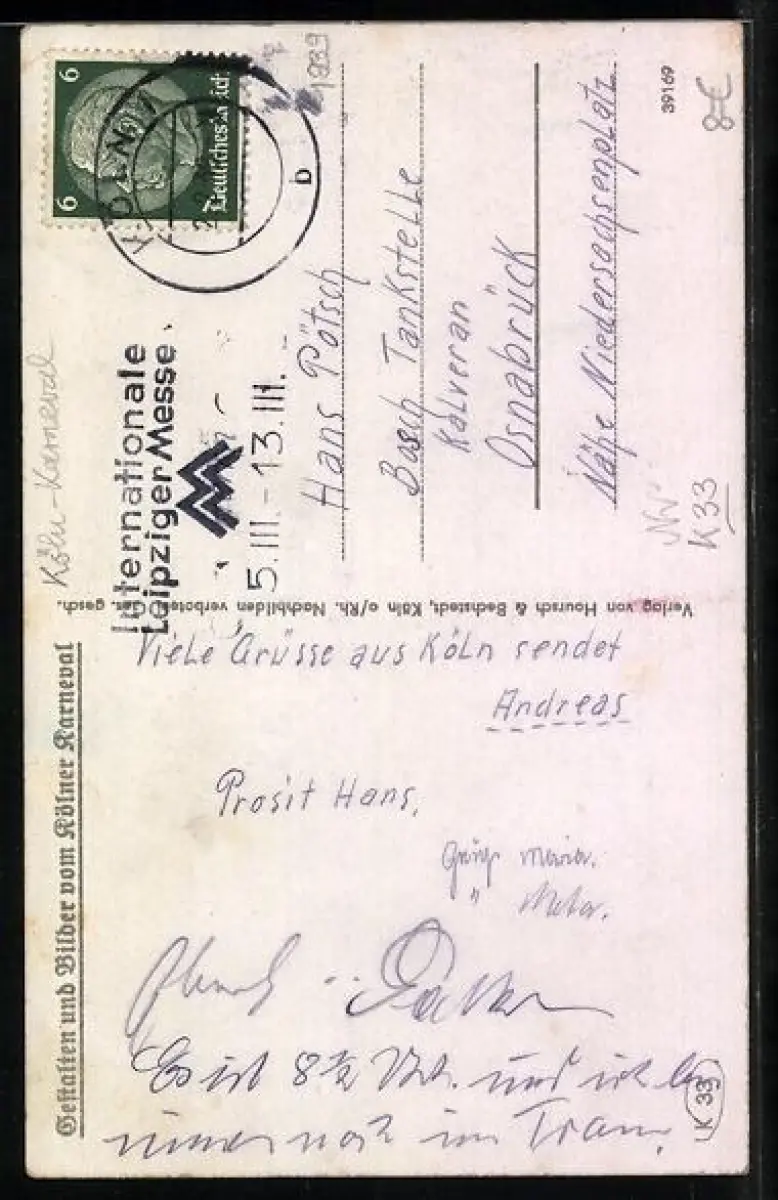 Gestalten und Bilder vom Kölner Karneval
Köln-Karneval
6
6
Deutsches Reich
KÖLN
b
1939
Internationale
Leipziger Messe
5. III. - 13. III.
39169
8€
Hans Pötsch
Bosch Tankstelle
Kolveran
Osnabrück
Nähe Niedersachsenplatz
K 33
Verlag von Hoursch & Bechstedt, Köln a/Rh. Nachbilden verboten, Ges. gesch.
Viele Grüsse aus Köln sendet
Andreas
Prosit Hans,
Es ist 8 ½ Uhr. und ich
immer noch im Tran.
K 33